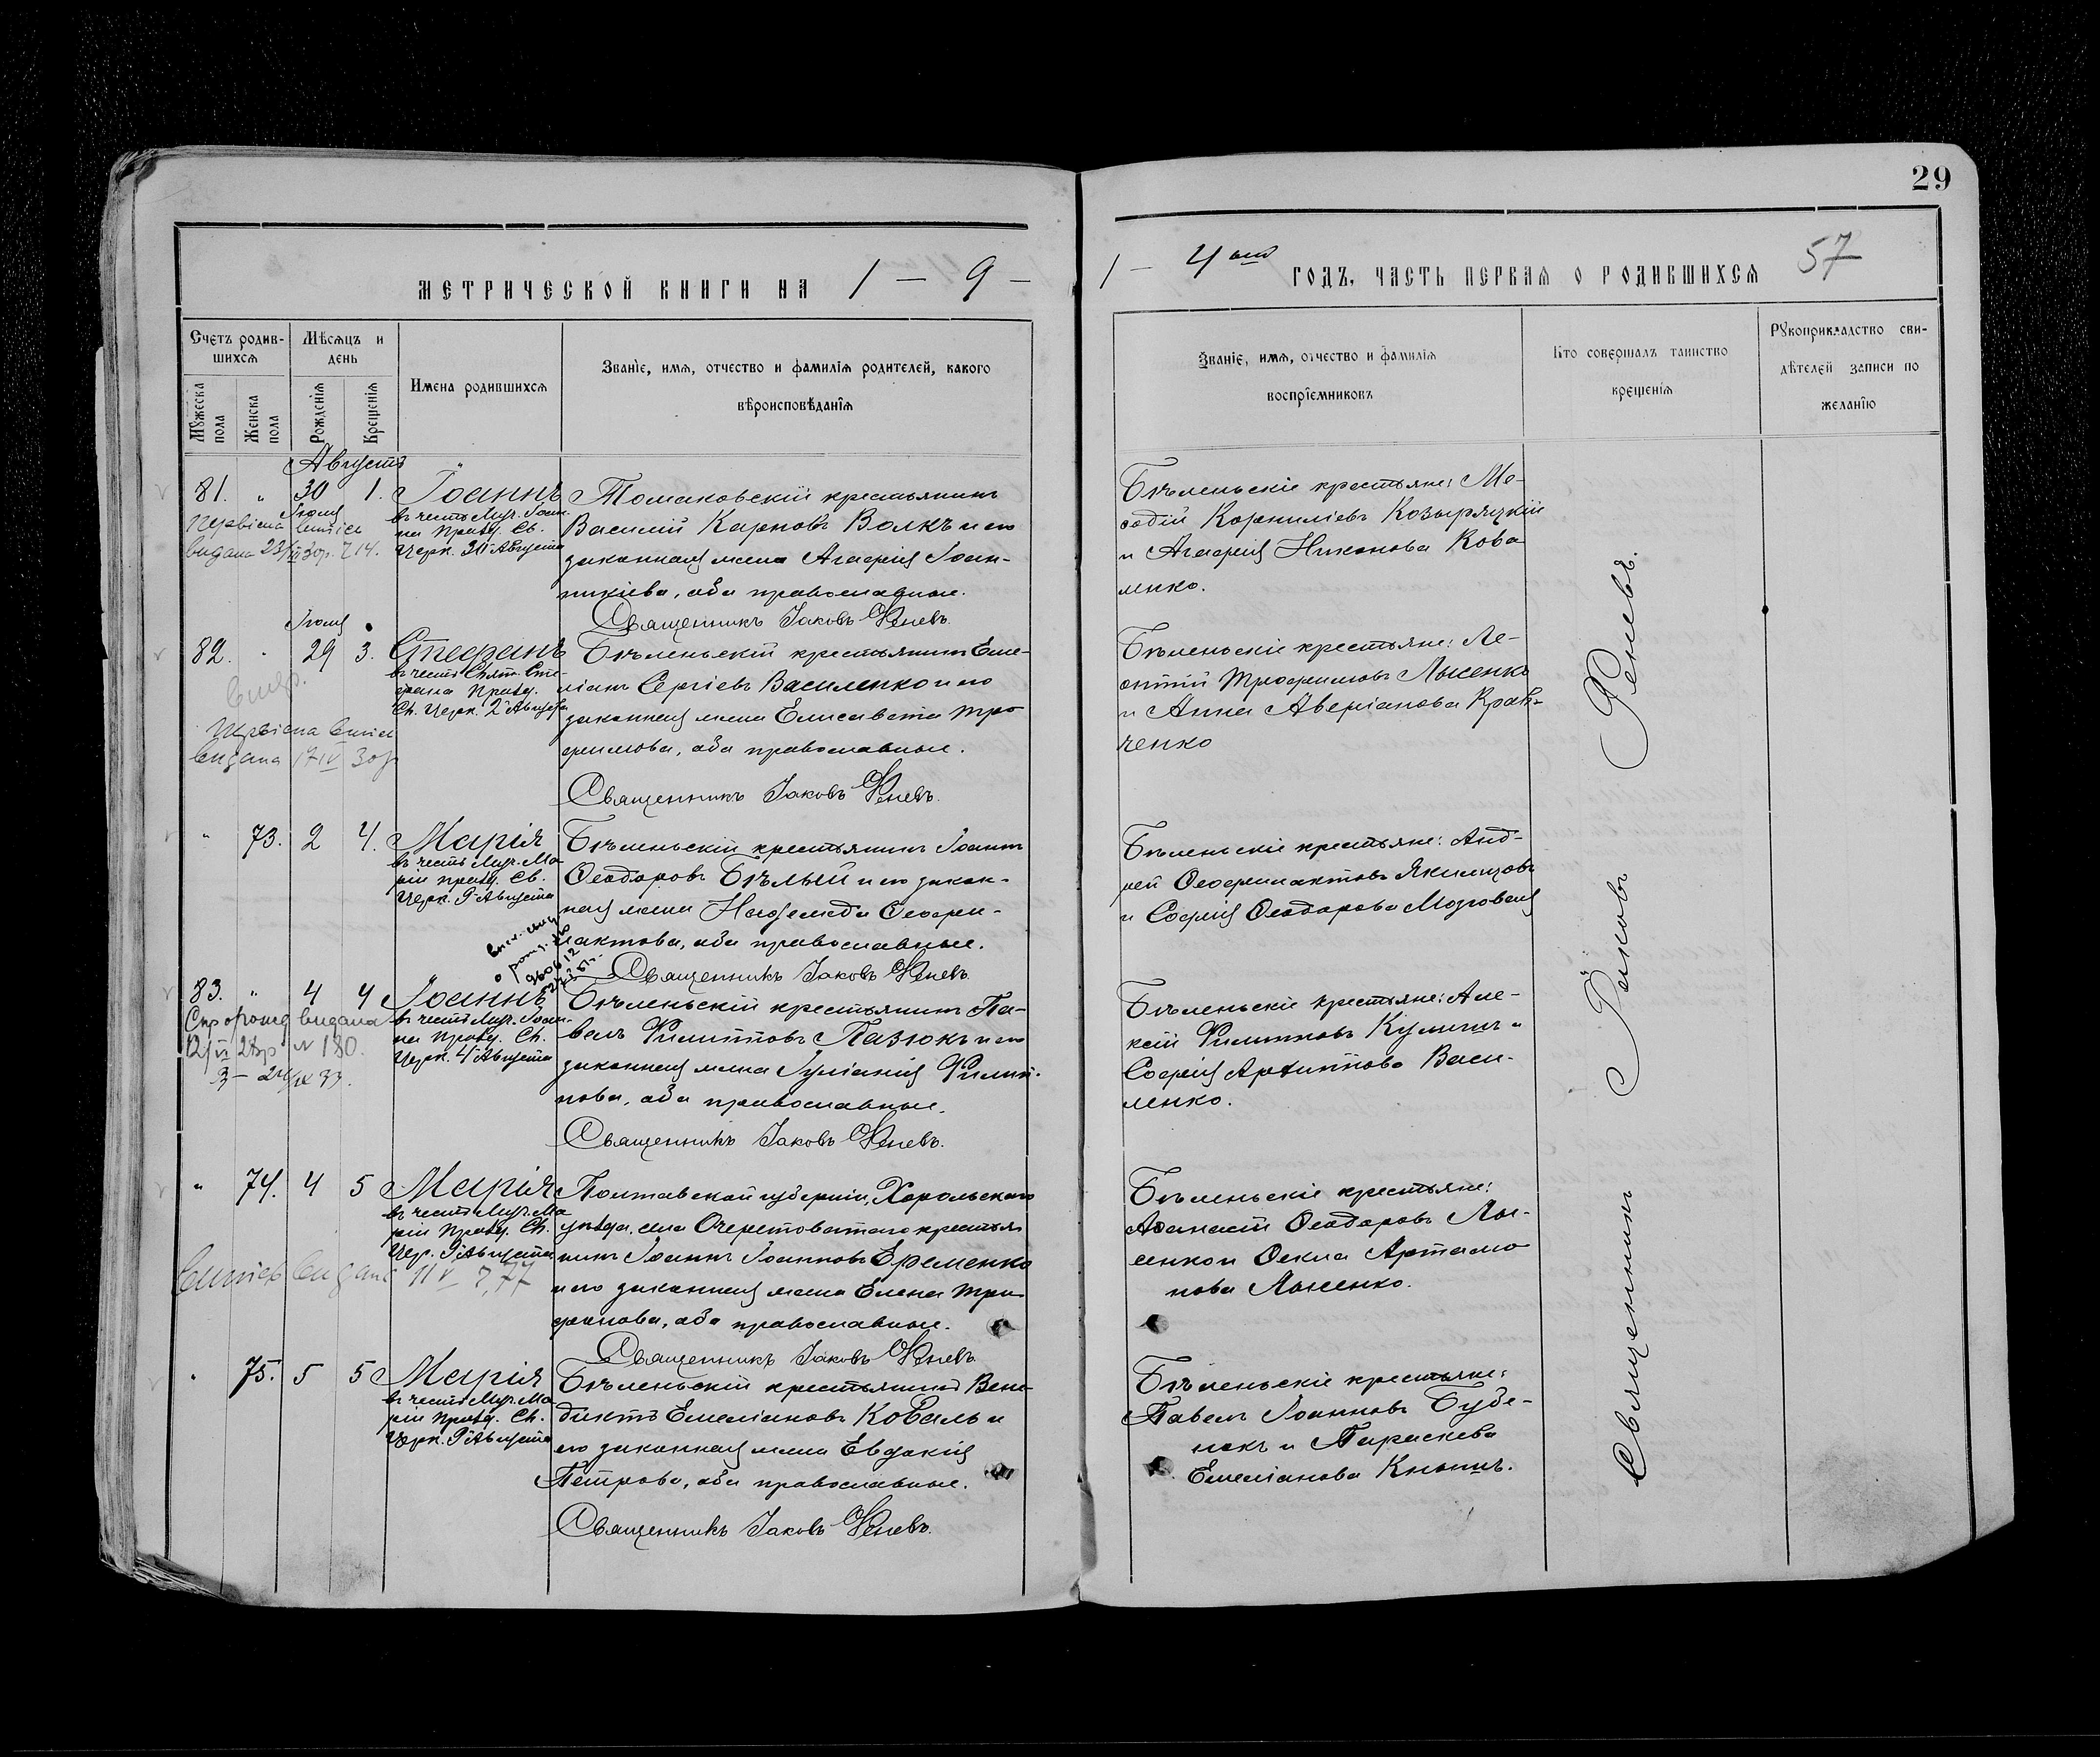 29
МЕТРИЧЕСКОЙ КНИГИ НА 1 — 9 —
1 — 4 ый ГОДЪ, ЧАСТЬ ПЕРВАЯ О РОДИВШИХСЯ
57
Счетъ родив-
шихся
Мѣсяцъ и
день
Мужеска
пола
Женска
пола
Рожденія
Крещенія
Имена родившихся
Званіе, имя, отчество и фамилія родителей, какого
вѣроисповѣданія
Званіе, имя, отчество и фамилія
воспріемниковъ
Кто совершалъ таинство
крещенія
Рукоприкладство сви-
дѣтелей записи по
желанію
Августъ
81. " 30 1.
Іюля
Іоаннъ
въ честь Муч. Іоан-
на празд. Св.
Церк. 30 Августа
Томаковскій крестьянинъ
Василій Карповъ Волкъ и его
законная жена Агафія Іоан-
никіева, оба православные.
Священникъ Іаковъ
Бѣленьскіе крестьяне: Ме-
ѳодій Корниліевъ Козыряцкій
и Агафія Никонова Кова-
ленко.
Іюля
82. " 29 3.
Стефанъ
празд.
Св. Церк. 2 Августа
Бѣленьскій крестьянинъ Еме-
ліанъ Сергіевъ Василенко и его
законная жена Елисавета Тро-
фимова, оба православные.
Священникъ Іаковъ
Бѣленьскіе крестьяне: Ле-
онтій Трофимовъ Лысенко
и Анна Аверіанова Крав-
ченко
" 73. 2 4.
Марія
въ честь Муч. Ма-
ріи празд. Св.
Церк. 9 Августа
Бѣленьскій крестьянинъ Іоаннъ
Ѳеодоровъ Бѣлый и его закон-
ная жена Надежда Ѳеофи-
лактова, оба православные.
Священникъ Іаковъ
Бѣленьскіе крестьяне: Анд-
рей Ѳеофилактовъ
и Софія Ѳеодорова Мозговая
83. " 4 4
Іоаннъ
въ честь Муч. Іоан-
на празд. Св.
Церк. 4 Августа
Бѣленьскій крестьянинъ Па-
велъ Филипповъ Пазюкъ и его
законная жена Іуліанія Филип-
пова, оба православные.
Священникъ Іаковъ
Бѣленьскіе крестьяне: Але-
ксій Филипповъ Кулишъ и
Софія Архиппова Васи-
ленко.
" 74. 4 5
Марія
въ честь Муч. Ма-
ріи празд. Св.
Цер. 9 Августа
Полтавской губерніи, Хорольскаго
уѣзда, села Очеретоватаго крестья-
нинъ Іоаннъ Іоанновъ Еременко
и его законная жена Елена Три-
фонова, оба православные.
Священникъ Іаковъ
Бѣленьскіе крестьяне:
Аѳанасій Ѳеодоровъ Лы-
сенко и Ѳекла Артамо-
нова Лысенко.
" 75. 5 5
Марія
въ честь Муч. Ма-
ріи празд. Св.
Церк. 9 Августа
Бѣленьскій крестьянинъ Вене-
диктъ Емеліановъ Коваль и
его законная жена Евдокія
Петрова, оба православные.
Священникъ Іаковъ
Бѣленьскіе крестьяне:
Павелъ Іоанновъ Бубе-
нокъ и Параскева
Емеліанова Кнышъ.
Священникъ Іаковъ